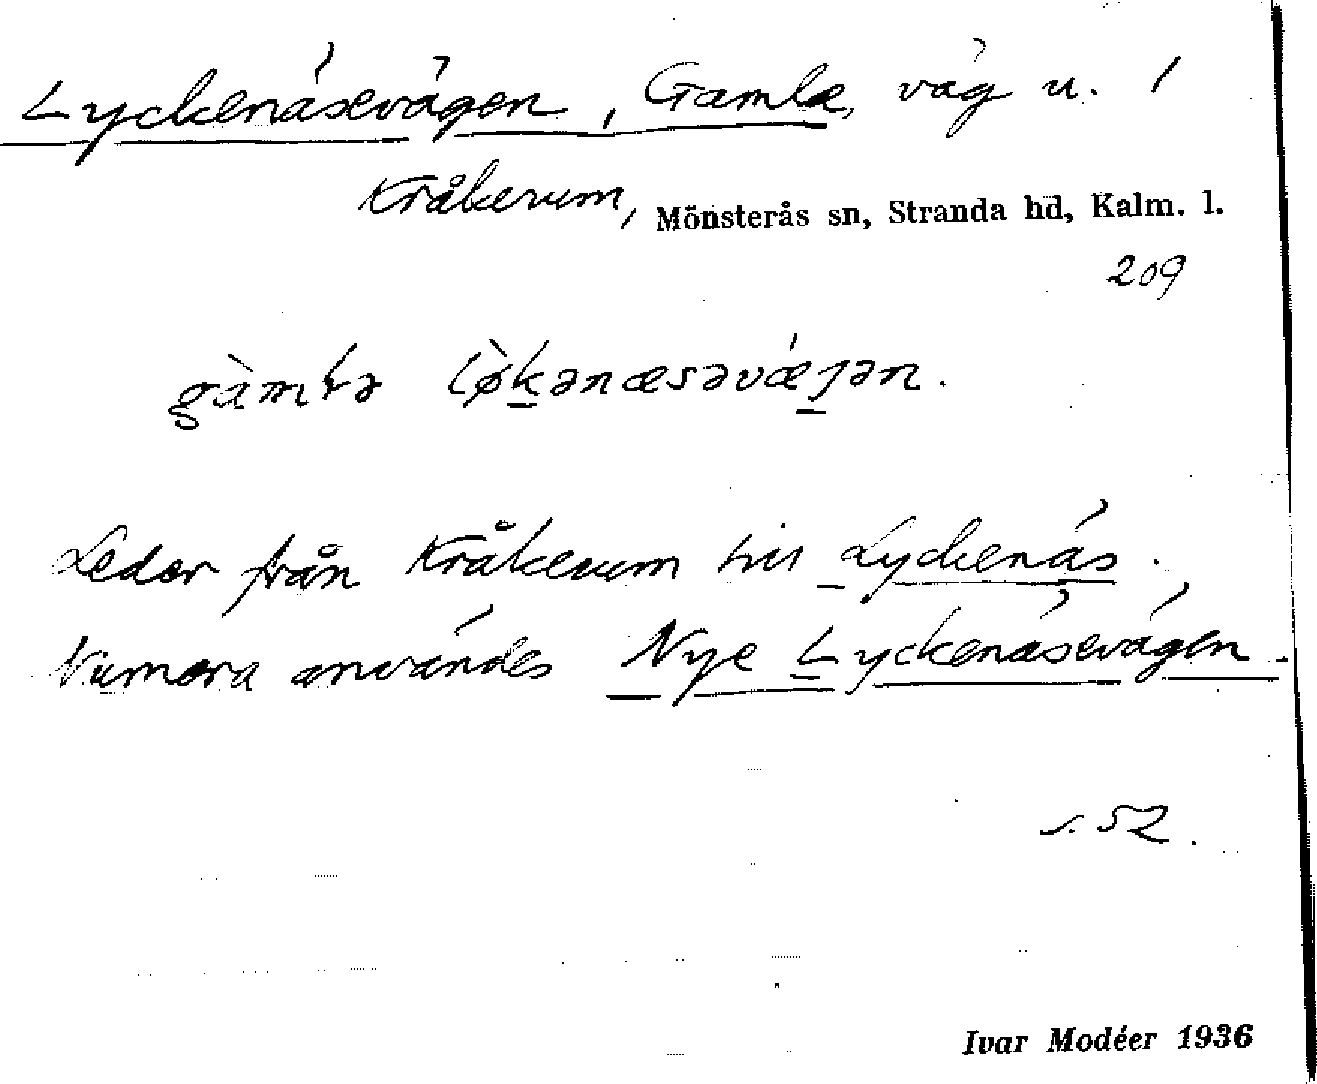 Lyckenäsevägen, Gamle, väg u. /
Kråkerum, Mönsterås sn, Stranda hd, Kalm. l.
209
Leder från Kråkerum till Lyckenäs.
Numera användes Nye Lyckenäsevägen.
s. 52.
Ivar Modéer 1936